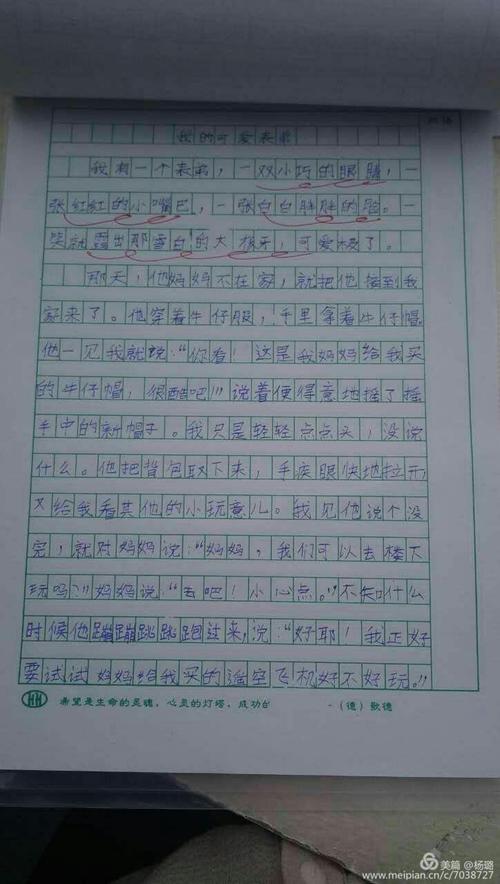 我的可爱表弟
我有一个表弟，一双小巧的眼睛，一
张红红的小嘴巴，一张白白胖胖的脸。一
笑就露出那雪白的大板牙，可爱极了。
那天，他妈妈不在家，就把他接到我
家来了。他穿着牛仔服，手里拿着牛仔帽。
他一见我就说：“你看！这是我妈妈给我买
的牛仔帽，很酷吧！”说着便得意地摇了摇
手中的新帽子。我只是轻轻点点头，没说
什么。他把背包取下来，手疾眼快地拉开，
又给我看其他的小玩意儿。我见他说个没
完，就对妈妈说：“妈妈，我们可以去楼下
玩吗？”妈妈说：“去吧！小心点。”不知什么
时候他蹦蹦跳跳跑过来，说：“好耶！我正好
要试试妈妈给我买的遥空飞机好不好玩。”
希望是生命的灵魂，心灵的灯塔，成功的
-（德）歌德
美篇 @杨璐
www.meipian.cn/c/7038727